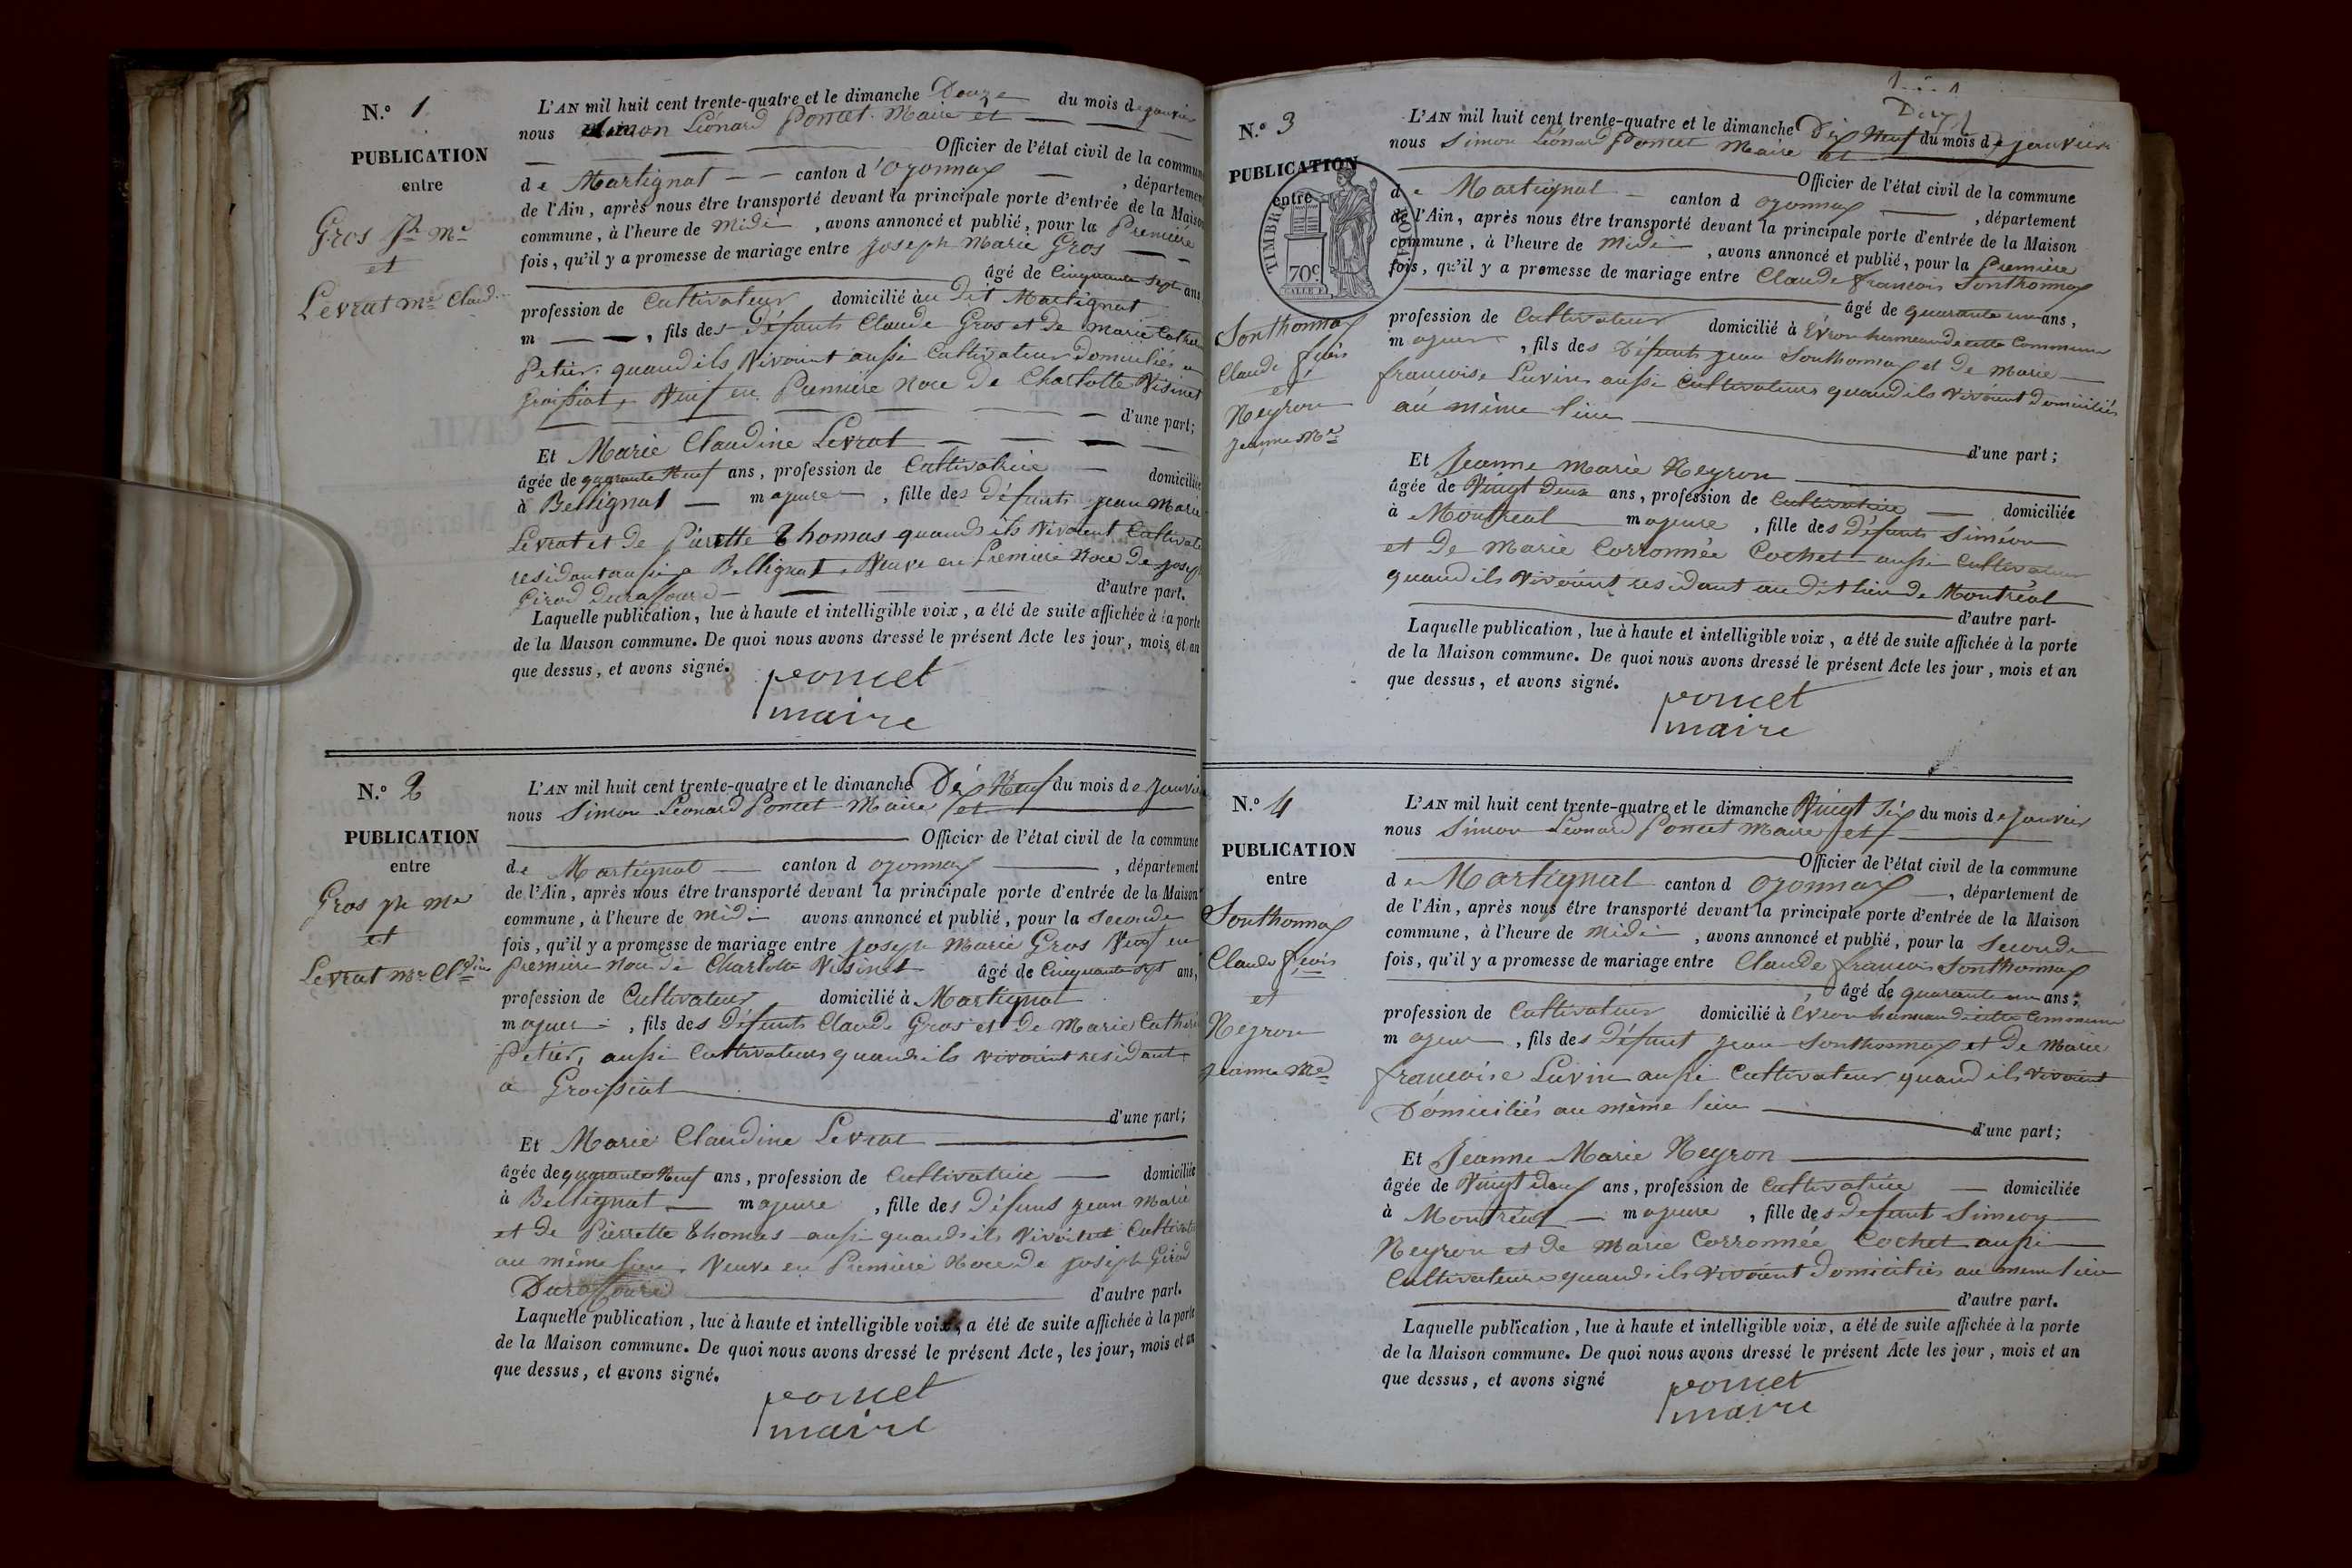 N.º 1
PUBLICATION
entre
Gros Jh Me
et
Levrat Me Claud
L'AN mil huit cent trente-quatre et le dimanche Douze du mois de janvier
nous Simon Léonard Poncet Maire et
Officier de l'état civil de la commune
de Martignat canton d'oyonnax, département
de l'Ain, après nous être transporté devant la principale porte d'entrée de la Maison
commune, à l'heure de Midi, avons annoncé et publié, pour la Première
fois, qu'il y a promesse de mariage entre Joseph Marie Gros
âgé de Cinquante Sept ans
profession de Cultivateur domicilié àu Dit Martignat
m, fils des Défunts Claude Gros et de Marie Cathe
Petier quand ils Vivoint aussi Cultivateur Domiciliés a
Groissiat, Veuf en Première Noce De Charlotte Visinet
d'une part;
Et Marie Claudine Levrat
âgée de quarante Neuf ans, profession de Cultivatrice domiciliée
à Bellignat majeure, fille des Défunts jean Marie
Levrat et De Pierette Thomas quand ils Vivoient Cultivate
residant aussi a Bellignat. Veuve en Premiere Noce De josep
Girod Duraffourd d'autre part.
Laquelle publication, lue à haute et intelligible voix, a été de suite affichée à la porte
de la Maison commune. De quoi nous avons dressé le présent Acte les jour, mois, et an
que dessus, et avons signé.
poncet
maire
N.º 2
PUBLICATION
entre
Gros jh me
et
Levrat me Cldine
L'AN mil huit cent trente-quatre et le dimanche Dix Neuf du mois de Janvie
nous Simon Léonard Poncet Maire et
Officier de l'état civil de la commune
de Martignat canton d oyonnax, département
de l'Ain, après nous être transporté devant la principale porte d'entrée de la Maison
commune, à l'heure de Midi avons annoncé et publié, pour la seconde
fois, qu'il y a promesse de mariage entre joseph Marie Gros Veuf en
première Noce de Charlotte Visinet âgé de Cinquante sept ans,
profession de Cultivateur domicilié à Martignat
majeur, fils des Défunts Claude Gros et de Marie Catheri
Petier, aussi Cultivateurs quand ils vivoint residant
a Groissiat
d'une part;
Et Marie Claudine Levrat
âgée de quarante Neuf ans, profession de Cultivatrice domiciliée
à Bellignat majeure, fille des Défuns jean Marie
et de Pierrette Thomas aussi quand ils Vivoint Cultivate
au même lieu. Veuve en Première Noce De joseph Girod
Duraffourd d'autre part.
Laquelle publication, lue à haute et intelligible voix, a été de suite affichée à la porte
de la Maison commune. De quoi nous avons dressé le présent Acte, les jour, mois et an
que dessus, et avons signé.
poncet
maire
N.º 3
PUBLICATION
entre
TIMBRE ROYAL
70c
Sonthonnax
Claude fçois
et
Neyron
jeanne Me
L'AN mil huit cent trente-quatre et le dimanche Dix Neuf du mois de janvier
nous Simon Léonard Poncet Maire et
Officier de l'état civil de la commune
de Martignat canton d oyonnax, département
de l'Ain, après nous être transporté devant la principale porte d'entrée de la Maison
commune, à l'heure de Midi, avons annoncé et publié, pour la Première
fois, qu'il y a promesse de mariage entre Claude françois Sonthonnax
âgé de quarante un ans,
profession de Cultivateur domicilié à Evron hameau de cette Commune
majeur, fils des Défunts jean Sonthonnax et De Marie
françoise Luvin aussi Cultivateurs quand ils vivoint Domiciliés
au même lieu
d'une part;
Et Jeanne Marie Neyron
âgée de Vingt Deux ans, profession de Cultivatrice domiciliée
à Montreal majeure, fille des Défunts Siméon
et De Marie Corronnée Cochet aussi Cultivateur
quand ils vivoint residant au Dit lieu De Montréal
d'autre part-
Laquelle publication, lue à haute et intelligible voix, a été de suite affichée à la porte
de la Maison commune. De quoi nous avons dressé le présent Acte les jour, mois et an
que dessus, et avons signé.
poncet
maire
N.º 4
PUBLICATION
entre
Sonthonnax
Claude fçois
et
Neyron
jeanne Me
L'AN mil huit cent trente-quatre et le dimanche Vingt Six du mois de janvier
nous Simon Léonard Poncet Maire et
Officier de l'état civil de la commune
de Martignat canton d oyonnax, département de
de l'Ain, après nous être transporté devant la principale porte d'entrée de la Maison
commune, à l'heure de Midi, avons annoncé et publié, pour la Seconde
fois, qu'il y a promesse de mariage entre Claude françois Sonthonnax
, âgé de quarante un ans;
profession de Cultivateur domicilié à Evron hameau de cette Commune
majeur, fils des Défunt jean Sonthonnax et De Marie
françoise Luvin aussi Cultivateur quand ils vivoint
Domiciliés au même lieu
d'une part;
Et Jeanne Marie Neyron
âgée de Vingt deux ans, profession de Cultivatrice domiciliée
à Montréal majeure, fille des Defunt Simeon
Neyron et De Marie Corronnée Cochet aussi
Cultivateurs quand ils vivoint Domiciliés au même lieu
d'autre part.
Laquelle publication, lue à haute et intelligible voix, a été de suite affichée à la porte
de la Maison commune. De quoi nous avons dressé le présent Acte les jour, mois et an
que dessus, et avons signé
poncet
maire